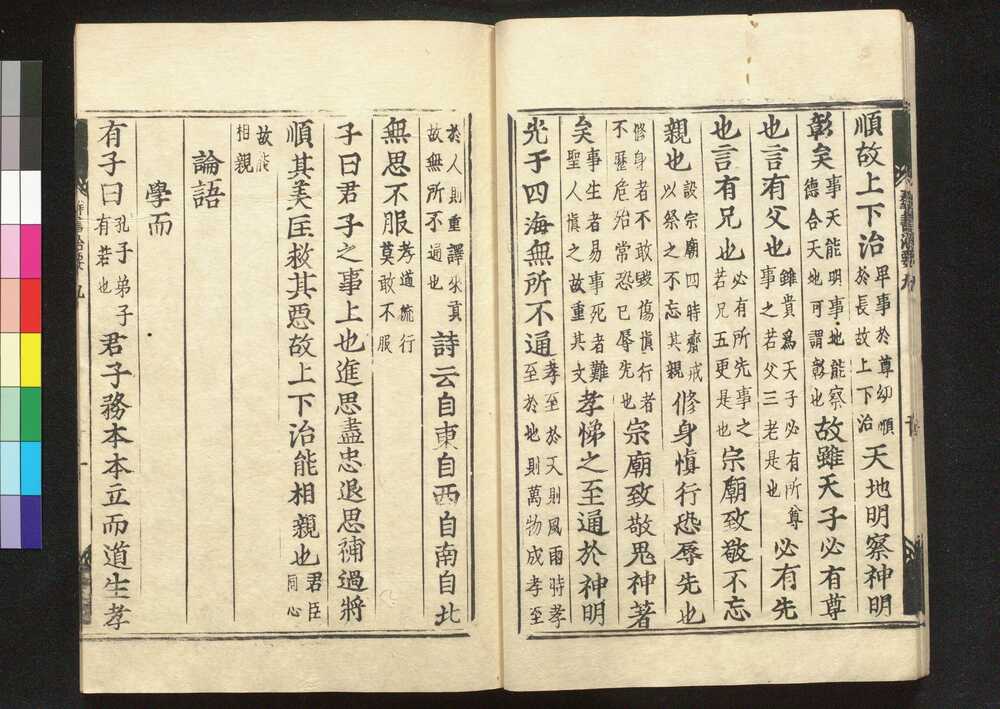 順故上下治卑事於尊幼順於長故上下治天地明察神明
彰矣事天能明事地能察德合天地可謂彰也故雖天子必有尊
也言有父也雖貴爲天子必有所尊事之若父三老是也必有先
也言有兄也必有所先事之若兄五更是也宗廟致敬不忘
親也設宗廟四時齋戒以祭之不忘其親脩身愼行恐辱先也
脩身者不敢毀傷愼行者不歷危殆常恐已辱先也宗廟致敬鬼神著
矣事生者易事死者難聖人愼之故重其文孝悌之至通於神明
光于四海無所不通孝至於天則風雨時孝至於地則萬物成孝至
於人則重譯來貢故無所不通也詩云自東自西自南自北
無思不服孝道流行莫敢不服
子曰君子之事上也進思盡忠退思補過將
順其美匡救其惡故上下治能相親也君臣同心
故能相親
論語
學而
有子曰孔子弟子有若也君子務本本立而道生孝
群書治要九